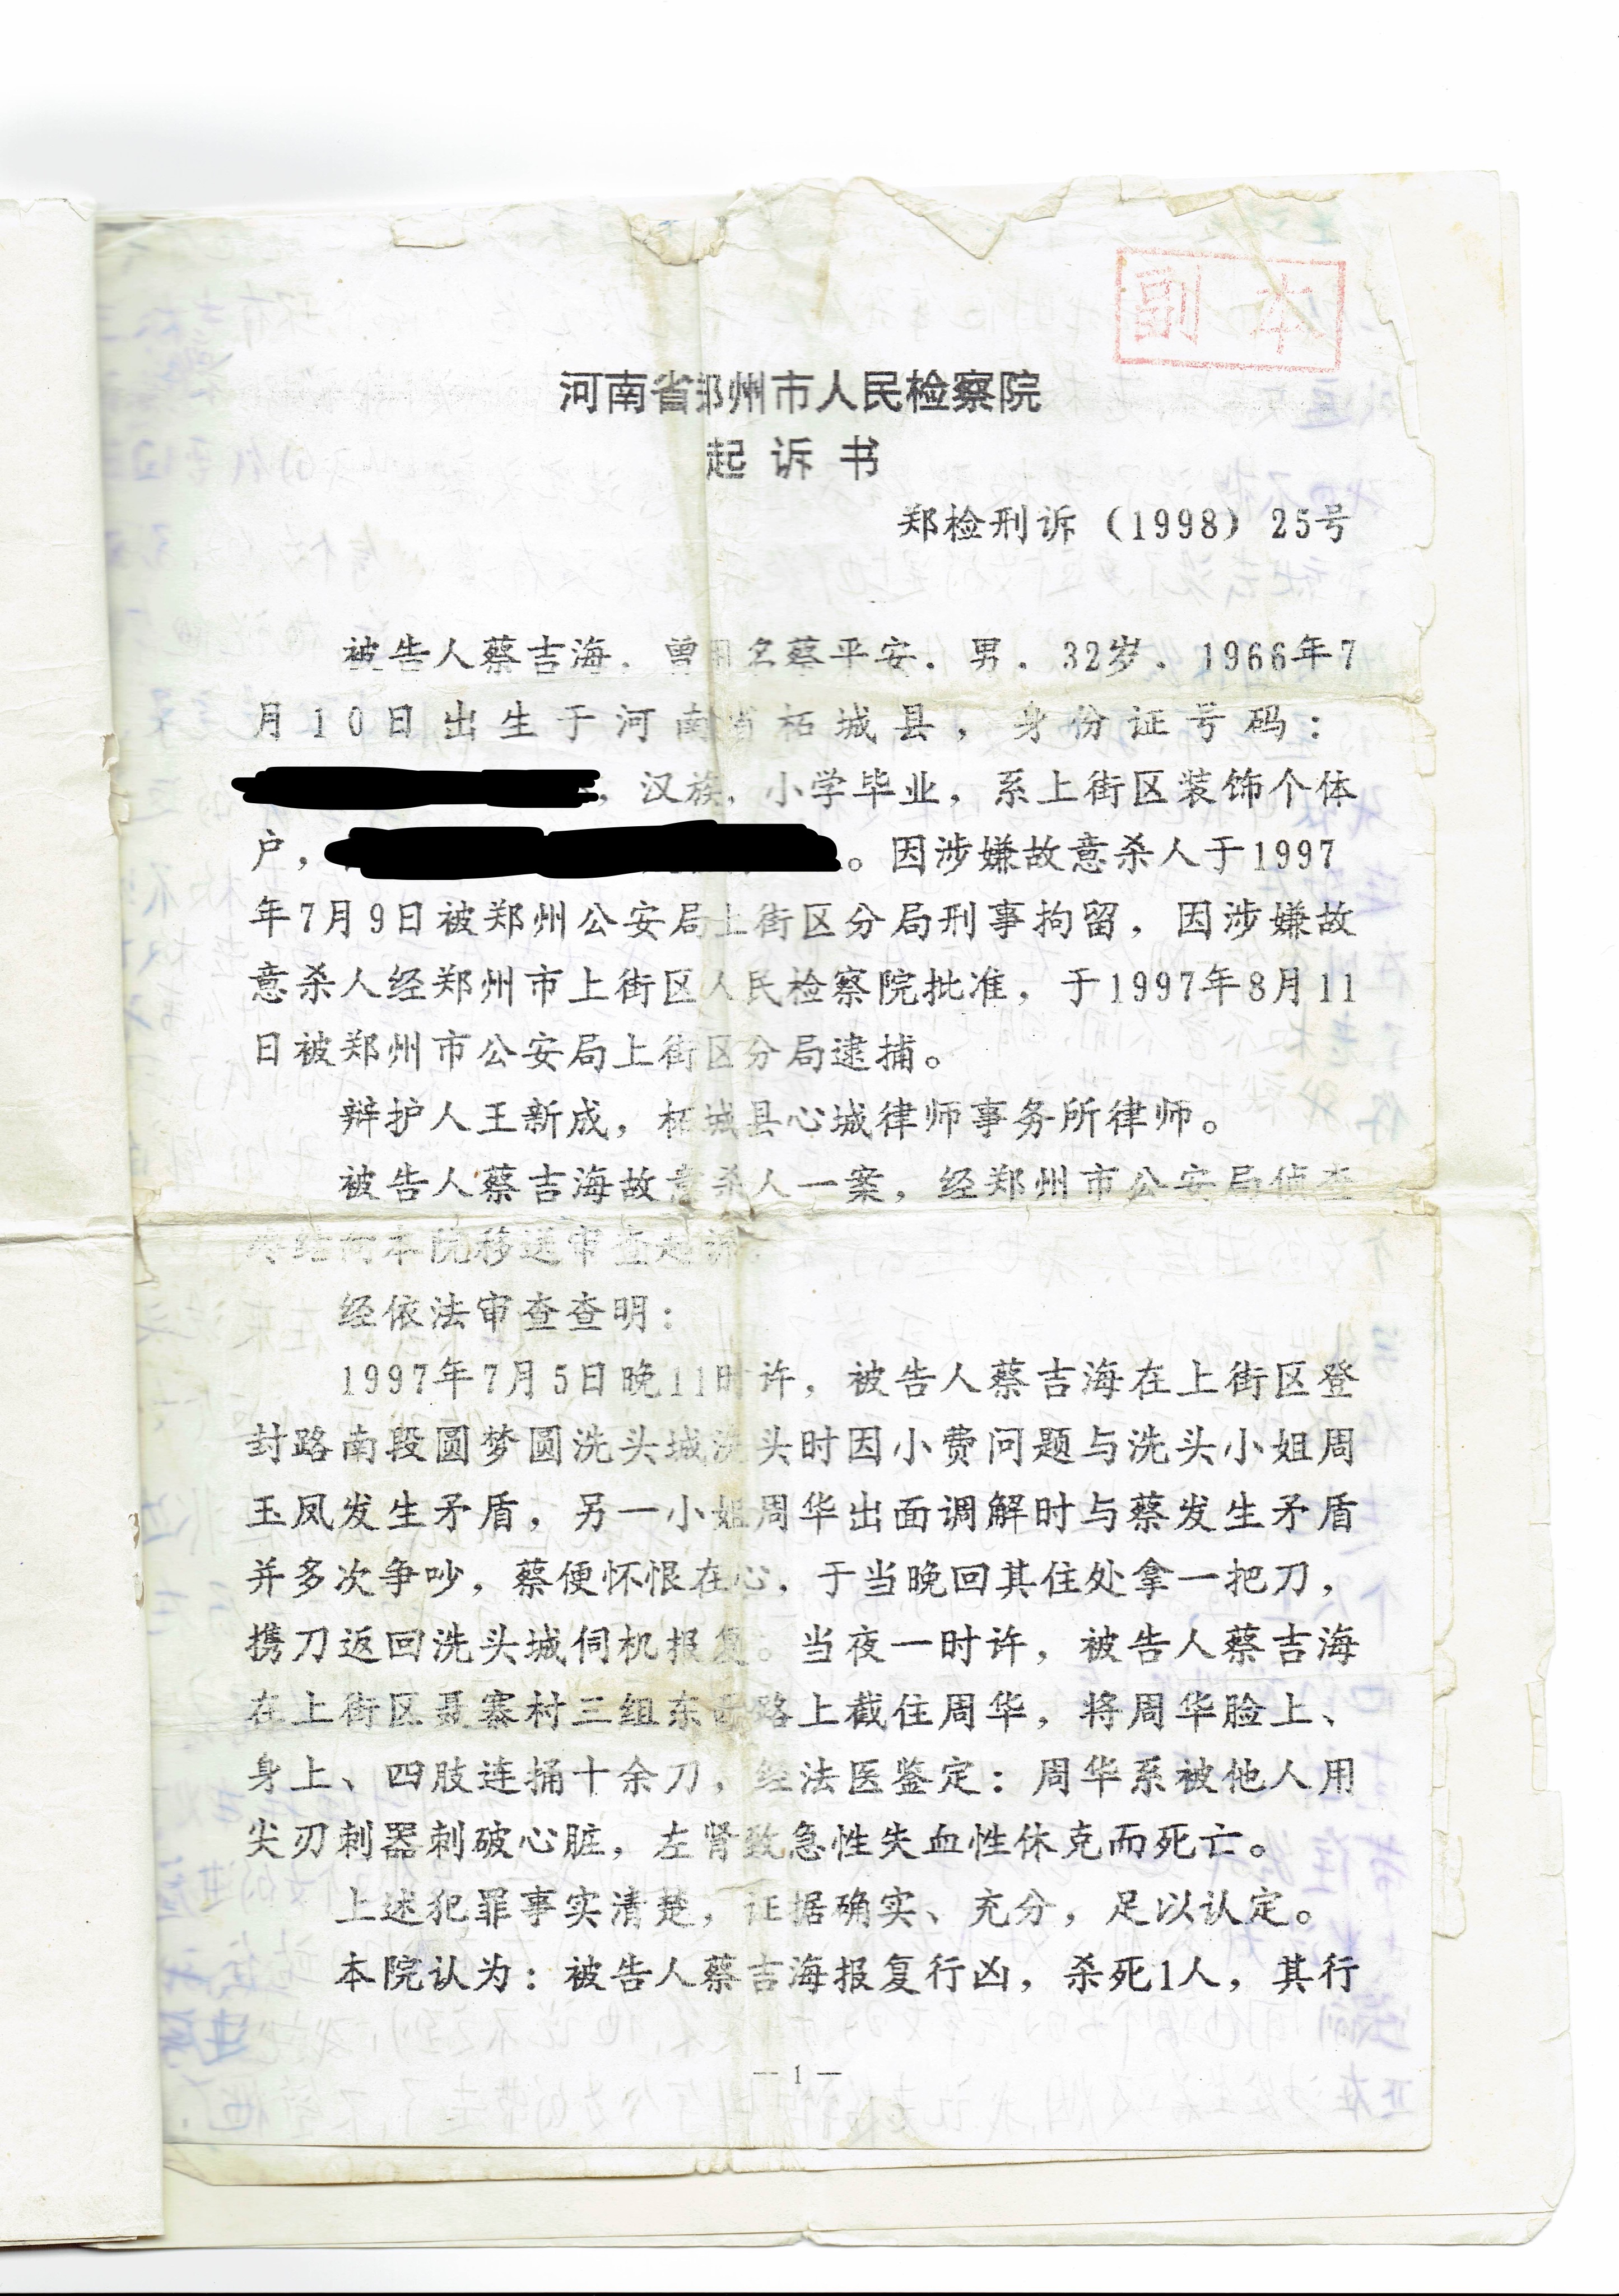 副本
河南省郑州市人民检察院
起诉书
郑检刑诉（1998）25号
被告人蔡吉海，曾用名蔡平安，男，32岁，1966年7
月10日出生于河南省柘城县，身份证号码：
，汉族，小学毕业，系上街区装饰个体
户，。因涉嫌故意杀人于1997
年7月9日被郑州公安局上街区分局刑事拘留，因涉嫌故
意杀人经郑州市上街区人民检察院批准，于1997年8月11
日被郑州市公安局上街区分局逮捕。
辩护人王新成，柘城县心城律师事务所律师。
被告人蔡吉海故意杀人一案，经郑州市公安局侦查
终结向本院移送审查起诉。
经依法审查查明：
1997年7月5日晚11时许，被告人蔡吉海在上街区登
封路南段圆梦圆洗头城洗头时因小费问题与洗头小姐周
玉凤发生矛盾，另一小姐周华出面调解时与蔡发生矛盾
并多次争吵，蔡便怀恨在心，于当晚回其住处拿一把刀，
携刀返回洗头城伺机报复。当夜一时许，被告人蔡吉海
在上街区聂寨村三组东路上截住周华，将周华脸上、
身上、四肢连捅十余刀，经法医鉴定：周华系被他人用
尖刃刺器刺破心脏，左肾致急性失血性休克而死亡。
上述犯罪事实清楚，证据确实、充分，足以认定。
本院认为：被告人蔡吉海报复行凶，杀死1人，其行
— 1 —